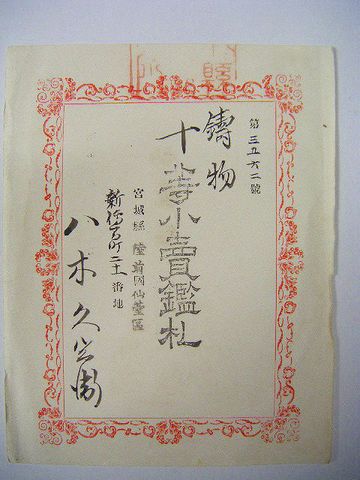 第三五六二號
鑄物
十等小賣鑑札
宮城縣陸前國仙臺區
新傳馬町二十一番地
八木久兵衛